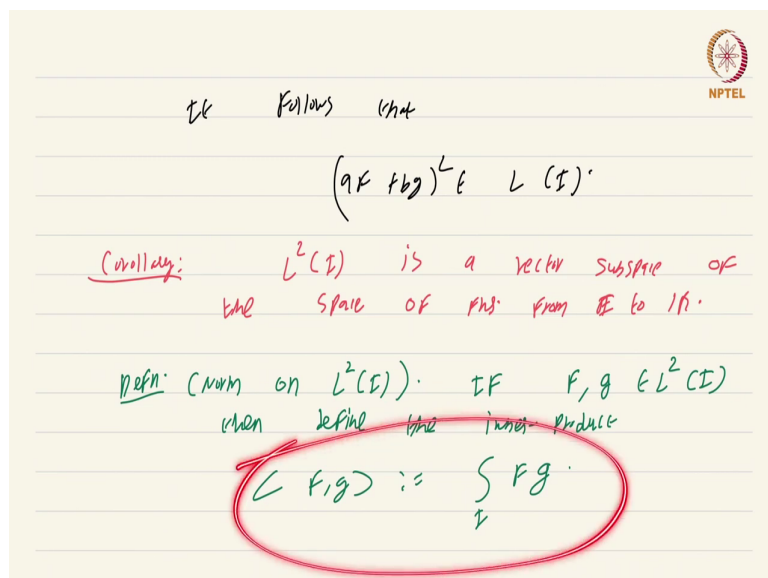 NPTEL
It follows that
(af + bg)² ∈ L(I).
Corollary: L²(I) is a vector subspace of
the space of fns. from I to ℝ.
Defn. (Norm on L²(I)). If f, g ∈ L²(I)
then define the inner-product
⟨f, g⟩ := ∫_I fg.